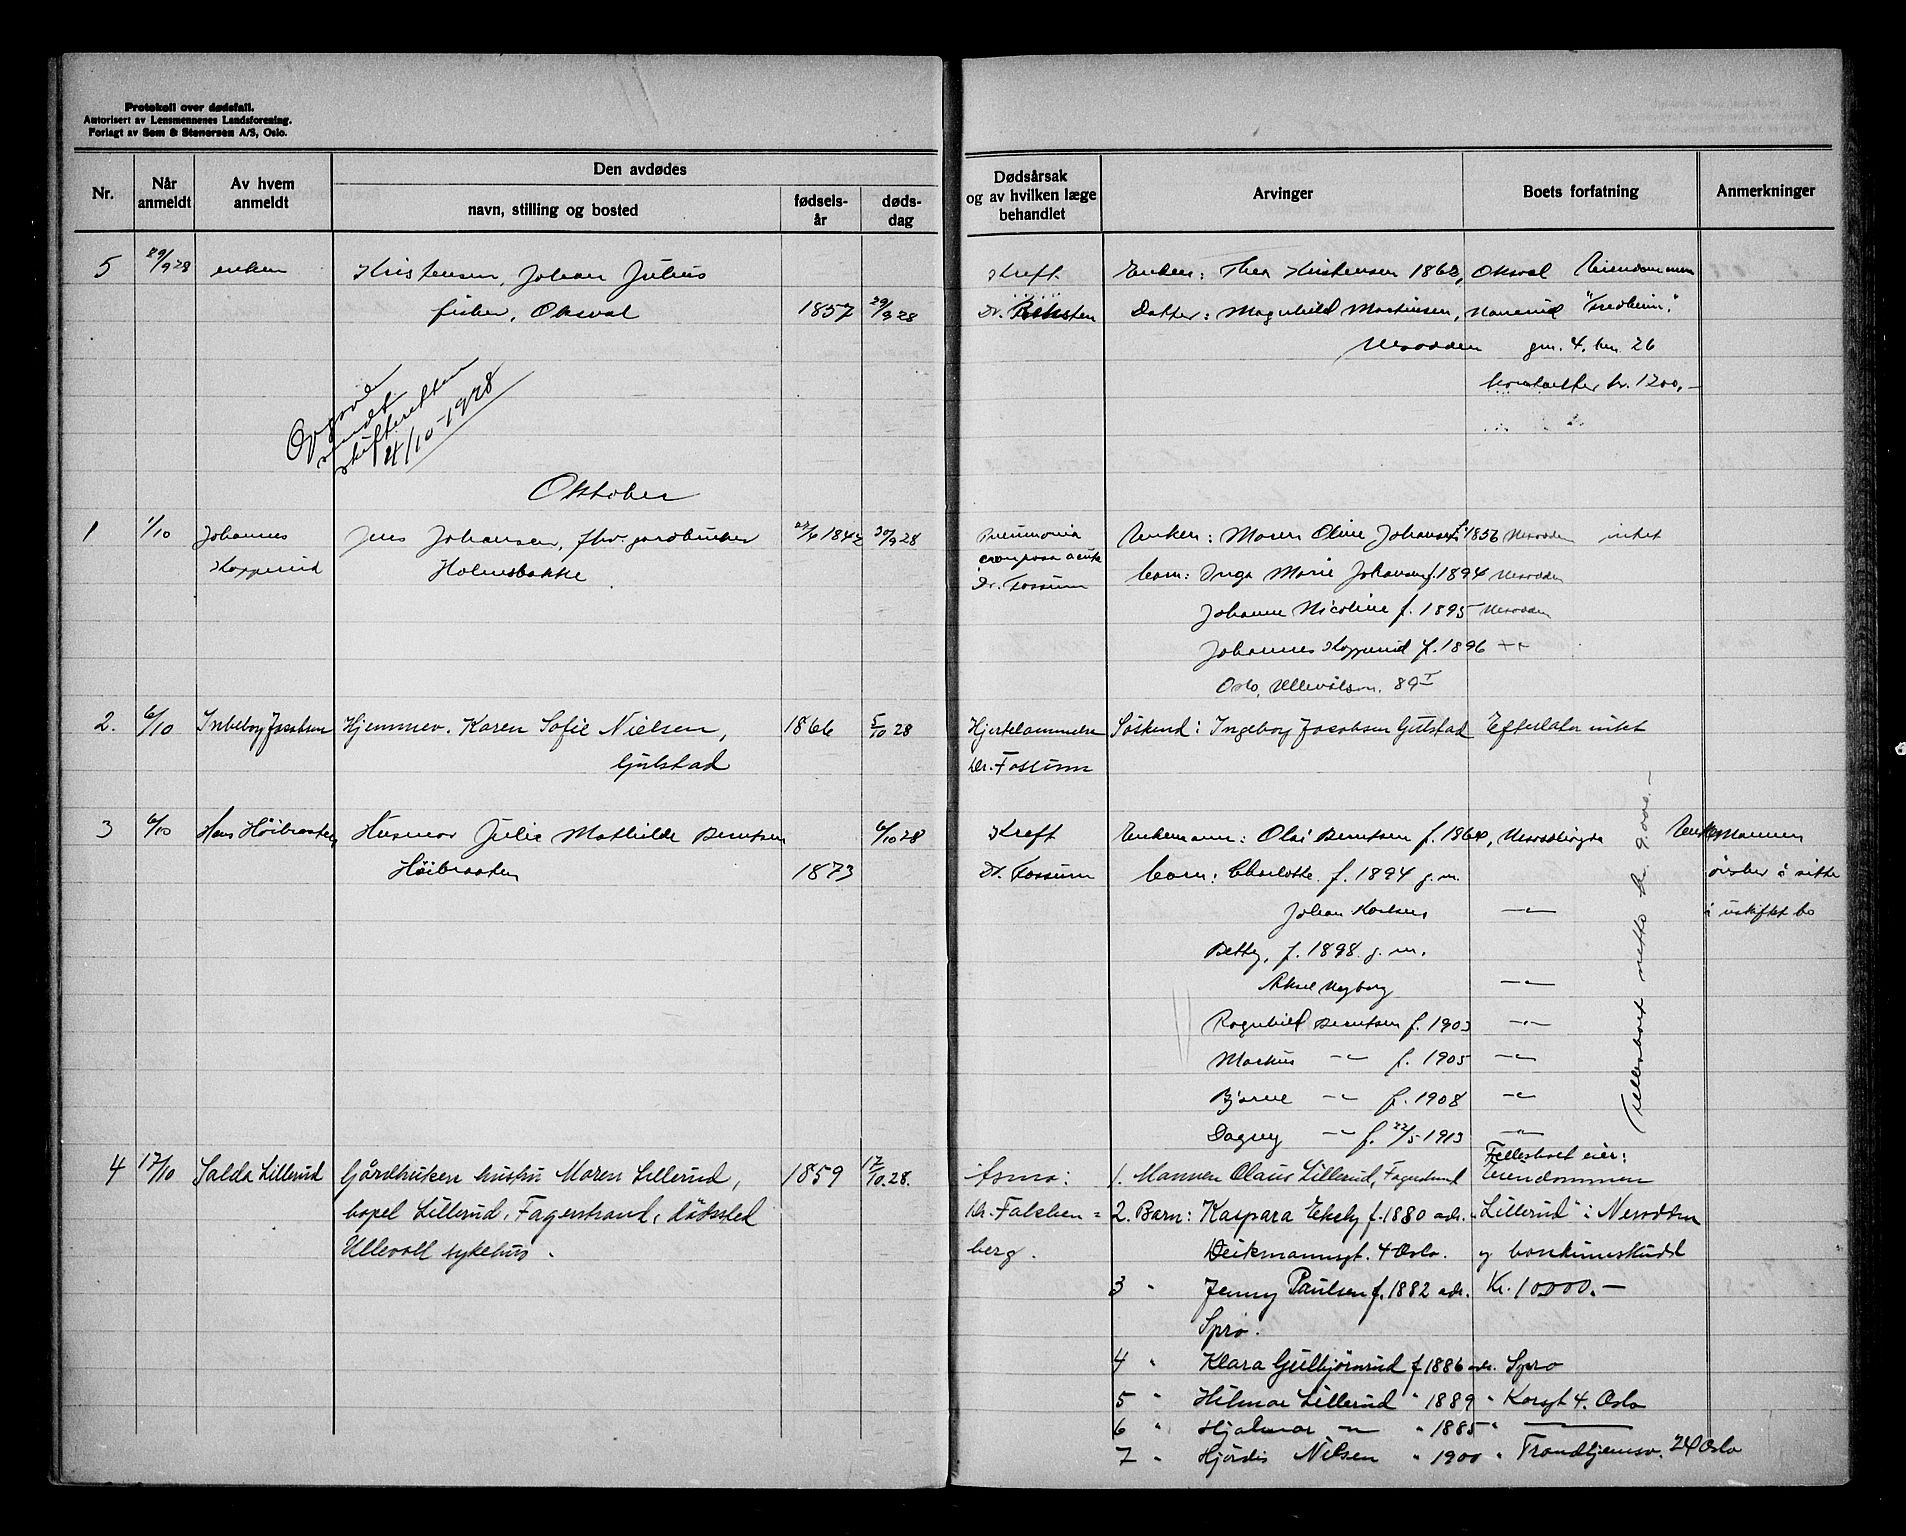 Protokoll over dødsfall.
Autorisert av Lensmennenes Landsforening.
Forlagt av Sem & Stenersen A/S, Oslo.
Nr.
Når anmeldt
Av hvem anmeldt
Den avdødes
navn, stilling og bosted
fødsels-år
døds-dag
Dødsårsak og av hvilken læge behandlet
Arvinger
Boets forfatning
Anmerkninger
5 29/9 28 enken Kristensen, Johan Julius Kreft Enken: Thea Kristensen 1862, Oksval Eiendommen
fisker, Oksval 1857 29/9 28 Dr. Datter: Magnhild Martinsen, "Fredheim",
Nesodden gnr. 4. bnr. 26
kr. 1200,-
Oppgave
sendt
skifteretten
4/10-1928
Oktober
1 1/10 Johannes Jens Johansen, fhv. gardbruker 27/6 1842 30/9 28 Pneumonia Enken: Maren Oline Johansen f. 1856 Nesodden intet
Kopperud Holmsbakke crouposa acuta barn: Inga Marie Johansen f. 1894 Nesodden
Dr. Fossum Johanne Nicoline f. 1895 Nesodden
Johannes Kopperud f. 1896 -"-
Oslo, Ullevålsvn. 89 I
2. 6/10 Ingeborg Jacobsen Hjemmev. Karen Sofie Nielsen, 1866 5/10 28 Hjertelammelse Søskend: Ingeborg Jacobsen Gulstad Efterlater intet
Gulstad Dr. Fossum
3 6/10 Hans Höibraaten Husmor Julie Mathilde Berntsen 6/10 28 Kreft Enkemann: Olai Berntsen f. 1864, Enkemannen
Höibraaten 1873 Dr. Fossum barn: Charlotte f. 1894 g.m. ønsker å sitte
Johan Karlsen -"- i uskiftet bo
Betty, f. 1898. g. m.
Aksel Nyborg -"-
Ragnhild Berntsen f. 1903 -"-
Markus -"- f. 1905 -"-
Bjarne -"- f. 1908 -"-
Dagny -"- f. 22/5 1913 -"-
Fellesboet netto kr. 9.000.-
4 17/10 Salda Lillerud Gårdbruker hustru Maren Lillerud, 1859 17/10. 28. Asma: 1. Mannen Olaus Lillerud, Fagerstrand Fellesboet eier: Eiendommen
bopel Lillerud, Fagerstrand, dødssted Dr. Falchen= 2. Barn: Kaspara Ekeby f. 1880 adr. "Lillerud" i Nesodden
Ullevoll sykehus. berg. Deikmannsgt. 4 Oslo. og bankinnskudd
3 " Jenny Paulsen f. 1882 adr. Kr. 10000.-
Spro.
4 " Klara Gulbjörnrud f 1886 adr. Spro
5 " Hilmar Lillerud " 1889 " Korsgt 4. Oslo
6 " Hjalmar -"- " 1885 "
7 " Hjördis Nilsen " 1900 " Trondhjemsv. 24 Oslo